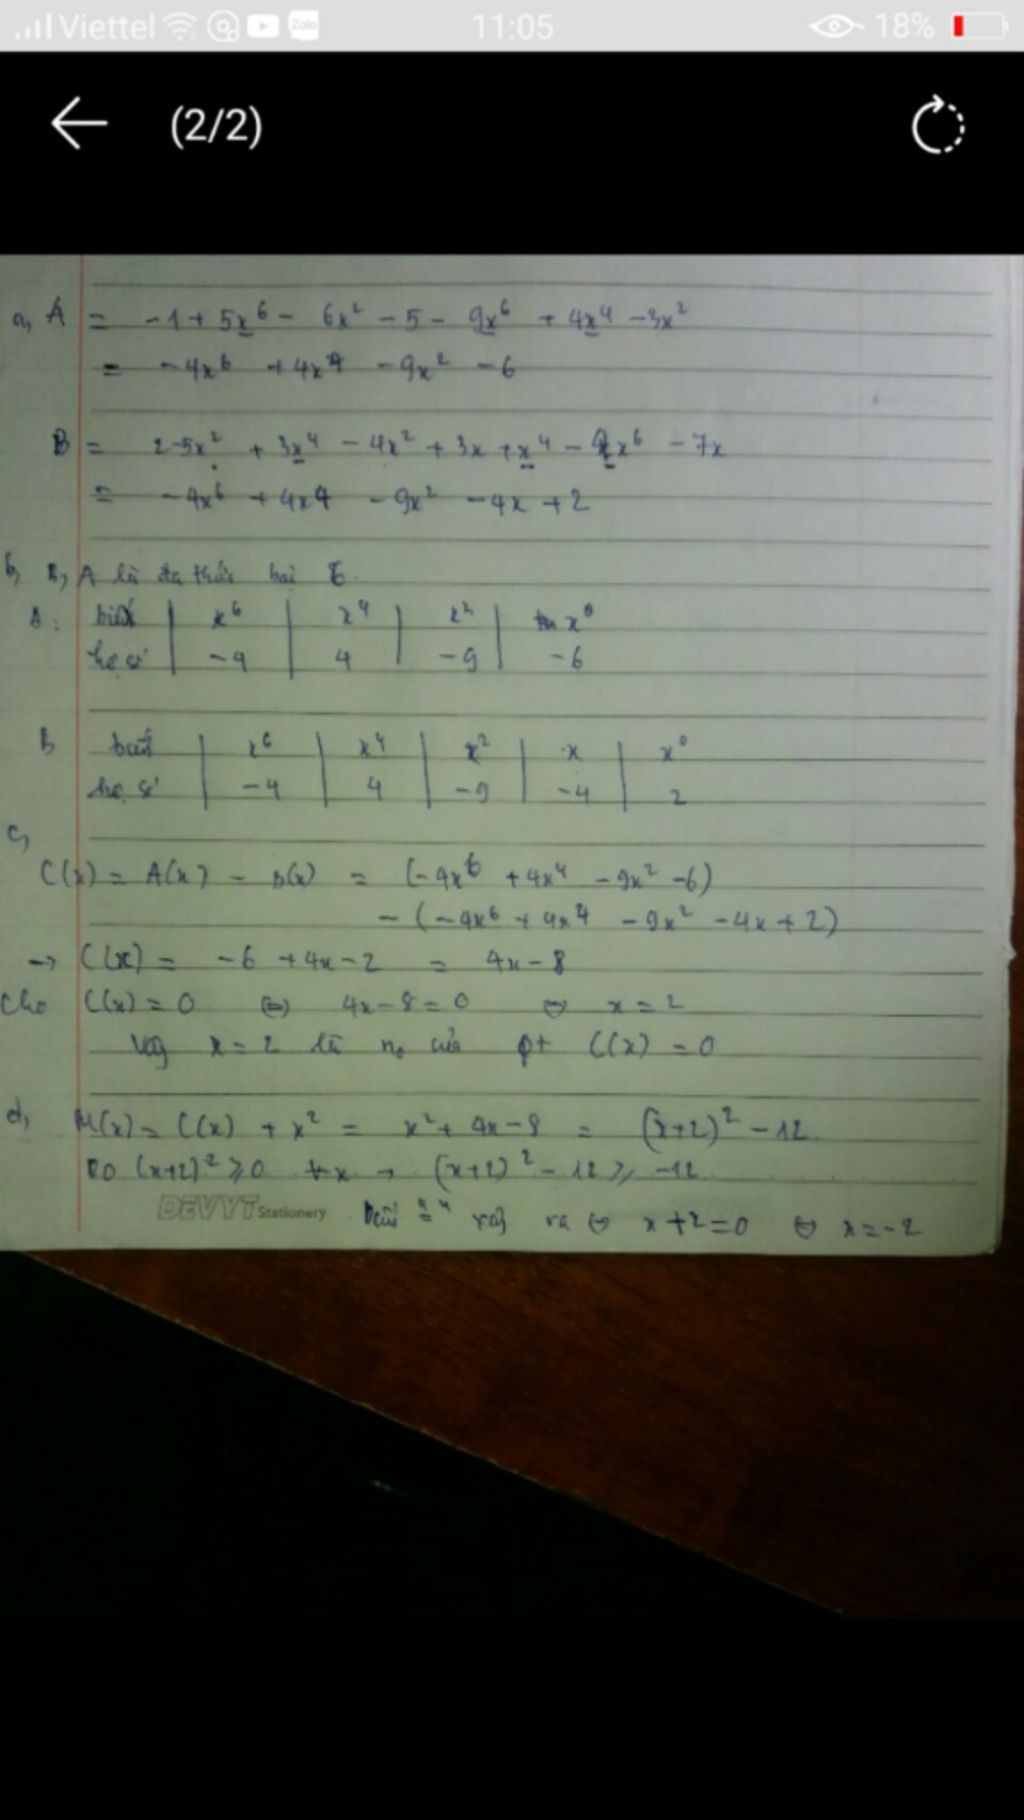 Viettel Zalo 11:05 18%
(2/2)
a, A = -1 + 5x⁶ - 6x² - 5 - 9x⁶ + 4x⁴ - 3x²
= -4x⁶ + 4x⁴ - 9x² - 6
B = 2 - 5x² + 3x⁴ - 4x² + 3x + x⁴ - 4x⁶ - 7x
= -4x⁶ + 4x⁴ - 9x² - 4x + 2
b, B, A là đa thức bậc 6.
A: biến | x⁶ | x⁴ | x² | x⁰
hệ số | -4 | 4 | -9 | -6
B biến | x⁶ | x⁴ | x² | x | x⁰
hệ số | -4 | 4 | -9 | -4 | 2
c,
C(x) = A(x) - B(x) = (-4x⁶ + 4x⁴ - 9x² - 6)
- (-4x⁶ + 4x⁴ - 9x² - 4x + 2)
→ C(x) = -6 + 4x - 2 = 4x - 8
Cho C(x) = 0 ⇔ 4x - 8 = 0 ⇔ x = 2
Vậy x = 2 là no của pt C(x) = 0
d, M(x) = C(x) + x² = x² + 4x - 8 = (x+2)² - 12
Do (x+2)² ≥ 0 ∀x → (x+2)² - 12 ≥ -12
DEVYT Stationery Dấu "=" xảy ra ⇔ x + 2 = 0 ⇔ x = -2